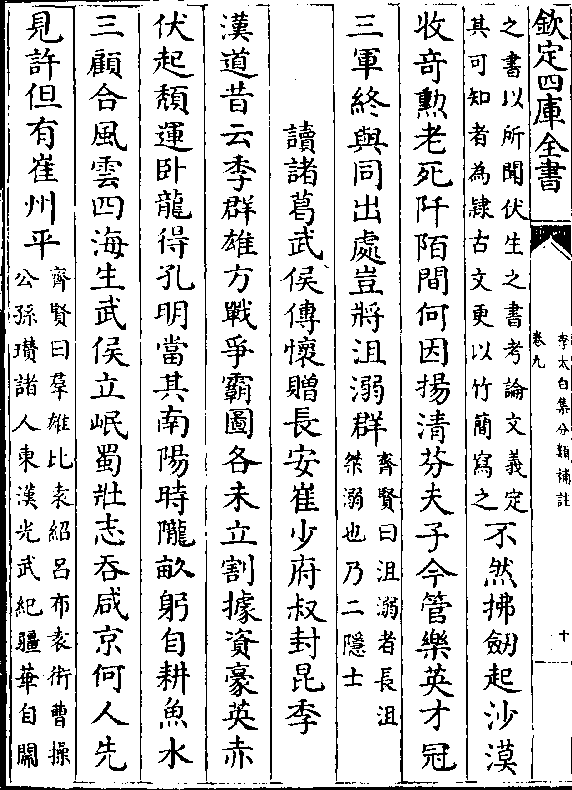 欽定四庫全書
李太白集分類補註
卷九
十
之書以所聞伏生之書考論文義定
其可知者為隷古文更以竹簡寫之
不然拂劒起沙漠
收竒勲老死阡陌間何因揚清芬夫子今管樂英才冠
三軍終與同出處豈將沮溺群
齊賢曰沮溺者長沮
桀溺也乃二隱士
讀諸葛武侯傳懷贈長安崔少府叔封昆季
漢道昔云季群雄方戰爭霸圖各未立割據資豪英赤
伏起頽運卧龍得孔明當其南陽時隴畝躬自耕魚水
三顧合風雲四海生武侯立岷蜀壯志吞咸京何人先
見許但有崔州平
齊賢曰羣雄比袁紹吕布袁術曹操
公孫瓚諸人東漢光武紀疆華自關